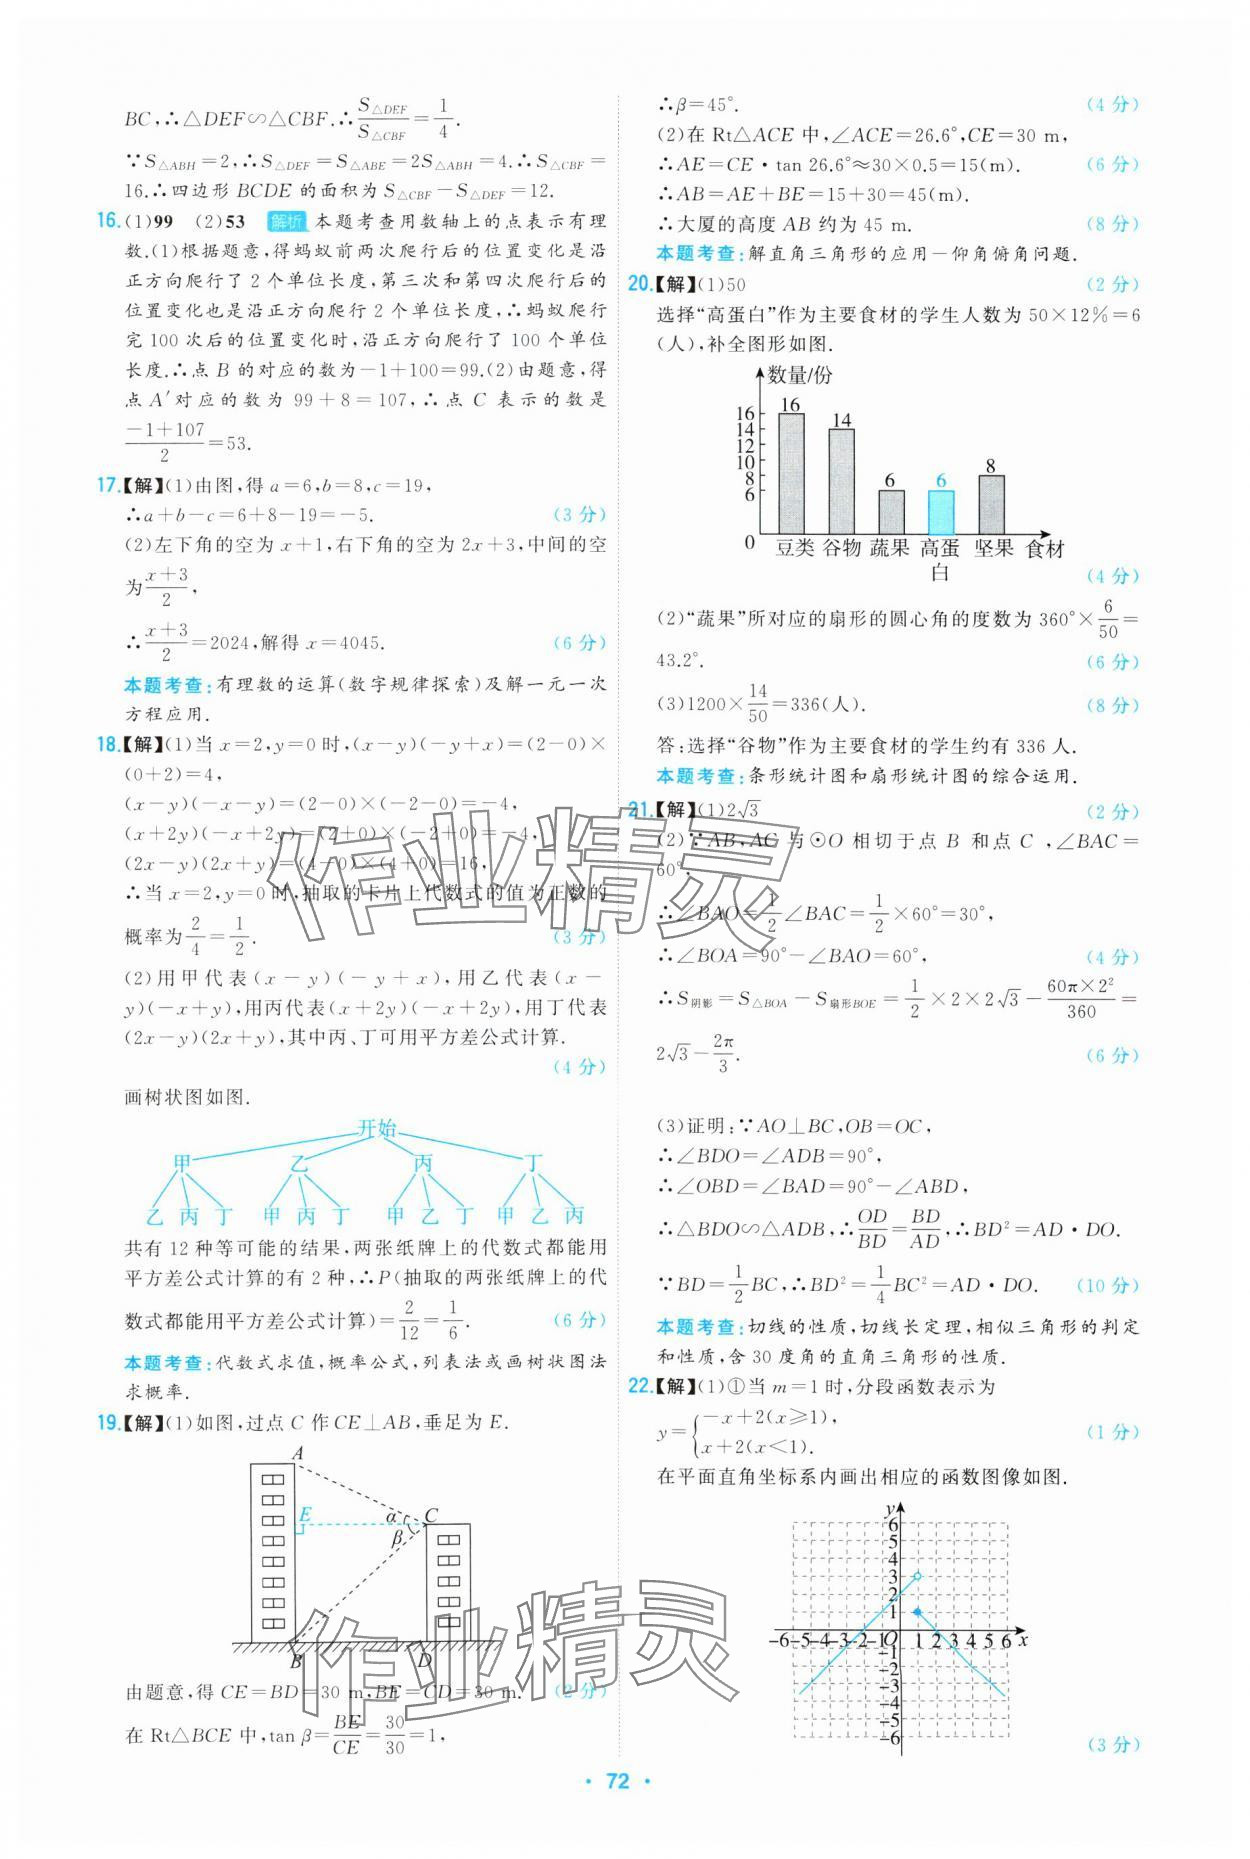 BC,∴△DEF∽△CBF.∴S△DEF/S△CBF=1/4.
∵S△ABH=2,∴S△DEF=S△ABE=2S△ABH=4.∴S△CBF=
16.∴四边形 BCDE 的面积为 S△CBF-S△DEF=12.
16.(1)99 (2)53 解析 本题考查用数轴上的点表示有理
数.(1)根据题意,得蚂蚁前两次爬行后的位置变化是沿
正方向爬行了 2 个单位长度,第三次和第四次爬行后的
位置变化也是沿正方向爬行 2 个单位长度,∴蚂蚁爬行
完 100 次后的位置变化时,沿正方向爬行了 100 个单位
长度.∴点 B 的对应的数为-1+100=99.(2)由题意,得
点 A′对应的数为 99+8=107,∴点 C 表示的数是
(-1+107)/2=53.
17.【解】(1)由图,得 a=6,b=8,c=19,
∴a+b-c=6+8-19=-5. (3 分)
(2)左下角的空为 x+1,右下角的空为 2x+3,中间的空
为(x+3)/2,
∴(x+3)/2=2024,解得 x=4045. (6 分)
本题考查:有理数的运算(数字规律探索)及解一元一次
方程应用.
18.【解】(1)当 x=2,y=0 时,(x-y)(-y+x)=(2-0)×
(0+2)=4,
(x-y)(-x-y)=(2-0)×(-2-0)=-4,
(x+2y)(-x+2y)=(2+0)×(-2+0)=-4,
(2x-y)(2x+y)=(4-0)×(4+0)=16,
∴当 x=2,y=0 时,抽取的卡片上代数式的值为正数的
概率为2/4=1/2. (3 分)
(2)用甲代表(x-y)(-y+x),用乙代表(x-
y)(-x+y),用丙代表(x+2y)(-x+2y),用丁代表
(2x-y)(2x+y),其中丙、丁可用平方差公式计算.
(4 分)
画树状图如图.
开始
甲 乙 丙 丁
乙 丙 丁 甲 丙 丁 甲 乙 丁 甲 乙 丙
共有 12 种等可能的结果,两张纸牌上的代数式都能用
平方差公式计算的有 2 种,∴P(抽取的两张纸牌上的代
数式都能用平方差公式计算)=2/12=1/6. (6 分)
本题考查:代数式求值,概率公式,列表法或画树状图法
求概率.
19.【解】(1)如图,过点 C 作 CE⊥AB,垂足为 E.
A
E α C
β
B D
由题意,得 CE=BD=30 m,BE=CD=30 m. (2 分)
在 Rt△BCE 中,tan β=BE/CE=30/30=1,
∴β=45°. (4 分)
(2)在 Rt△ACE 中,∠ACE=26.6°,CE=30 m,
∴AE=CE·tan 26.6°≈30×0.5=15(m). (6 分)
∴AB=AE+BE=15+30=45(m).
∴大厦的高度 AB 约为 45 m. (8 分)
本题考查:解直角三角形的应用—仰角俯角问题.
20.【解】(1)50 (2 分)
选择“高蛋白”作为主要食材的学生人数为 50×12%=6
(人),补全图形如图.
数量/份
16 16
14 14
12
10
8 8
6 6 6
0 豆类 谷物 蔬果 高蛋 坚果 食材
白 (4 分)
(2)“蔬果”所对应的扇形的圆心角的度数为 360°×6/50=
43.2°. (6 分)
(3)1200×14/50=336(人). (8 分)
答:选择“谷物”作为主要食材的学生约有 336 人.
本题考查:条形统计图和扇形统计图的综合运用.
21.【解】(1)2√3 (2 分)
(2)∵AB,AC 与⊙O 相切于点 B 和点 C,∠BAC=
60°.
∴∠BAO=1/2∠BAC=1/2×60°=30°,
∴∠BOA=90°-∠BAO=60°, (4 分)
∴S阴影=S△BOA-S扇形BOE=1/2×2×2√3-60π×2²/360=
2√3-2π/3. (6 分)
(3)证明:∵AO⊥BC,OB=OC,
∴∠BDO=∠ADB=90°,
∴∠OBD=∠BAD=90°-∠ABD,
∴△BDO∽△ADB,∴OD/BD=BD/AD,∴BD²=AD·DO.
∵BD=1/2BC,∴BD²=1/4BC²=AD·DO. (10 分)
本题考查:切线的性质,切线长定理,相似三角形的判定
和性质,含 30 度角的直角三角形的性质.
22.【解】(1)①当 m=1 时,分段函数表示为
y={-x+2(x≥1),
x+2(x<1). (1 分)
在平面直角坐标系内画出相应的函数图像如图.
y
6
5
4
3
2
1
-6-5-4-3-2-1 O 1 2 3 4 5 6 x
-2
-3
-4
-5
-6
(3 分)
作业精灵
作业精灵
· 72 ·